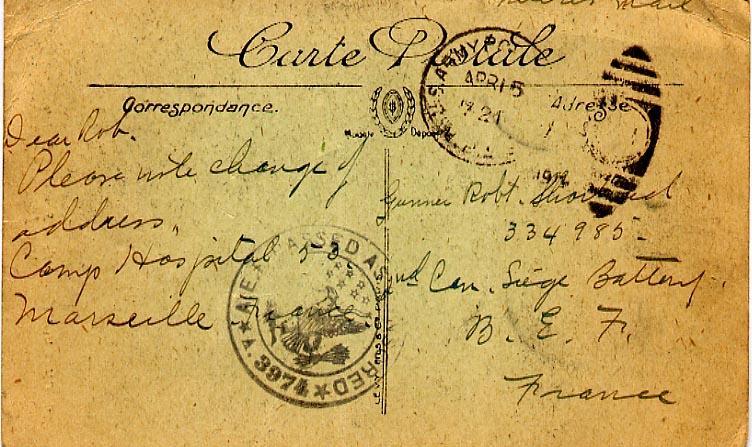 Carte Postale
Correspondance.
Adresse
Modèle Déposé
U.S. ARMY P.O.
APR 15
Dear Rob.
Please note change of
address.
Camp Hospital 53
Marseille France
Gunner Robt.
334985
2nd Can. Siege Battery.
B. E. F.
France
A.E.F. PASSED AS CENSORED
A. 3974